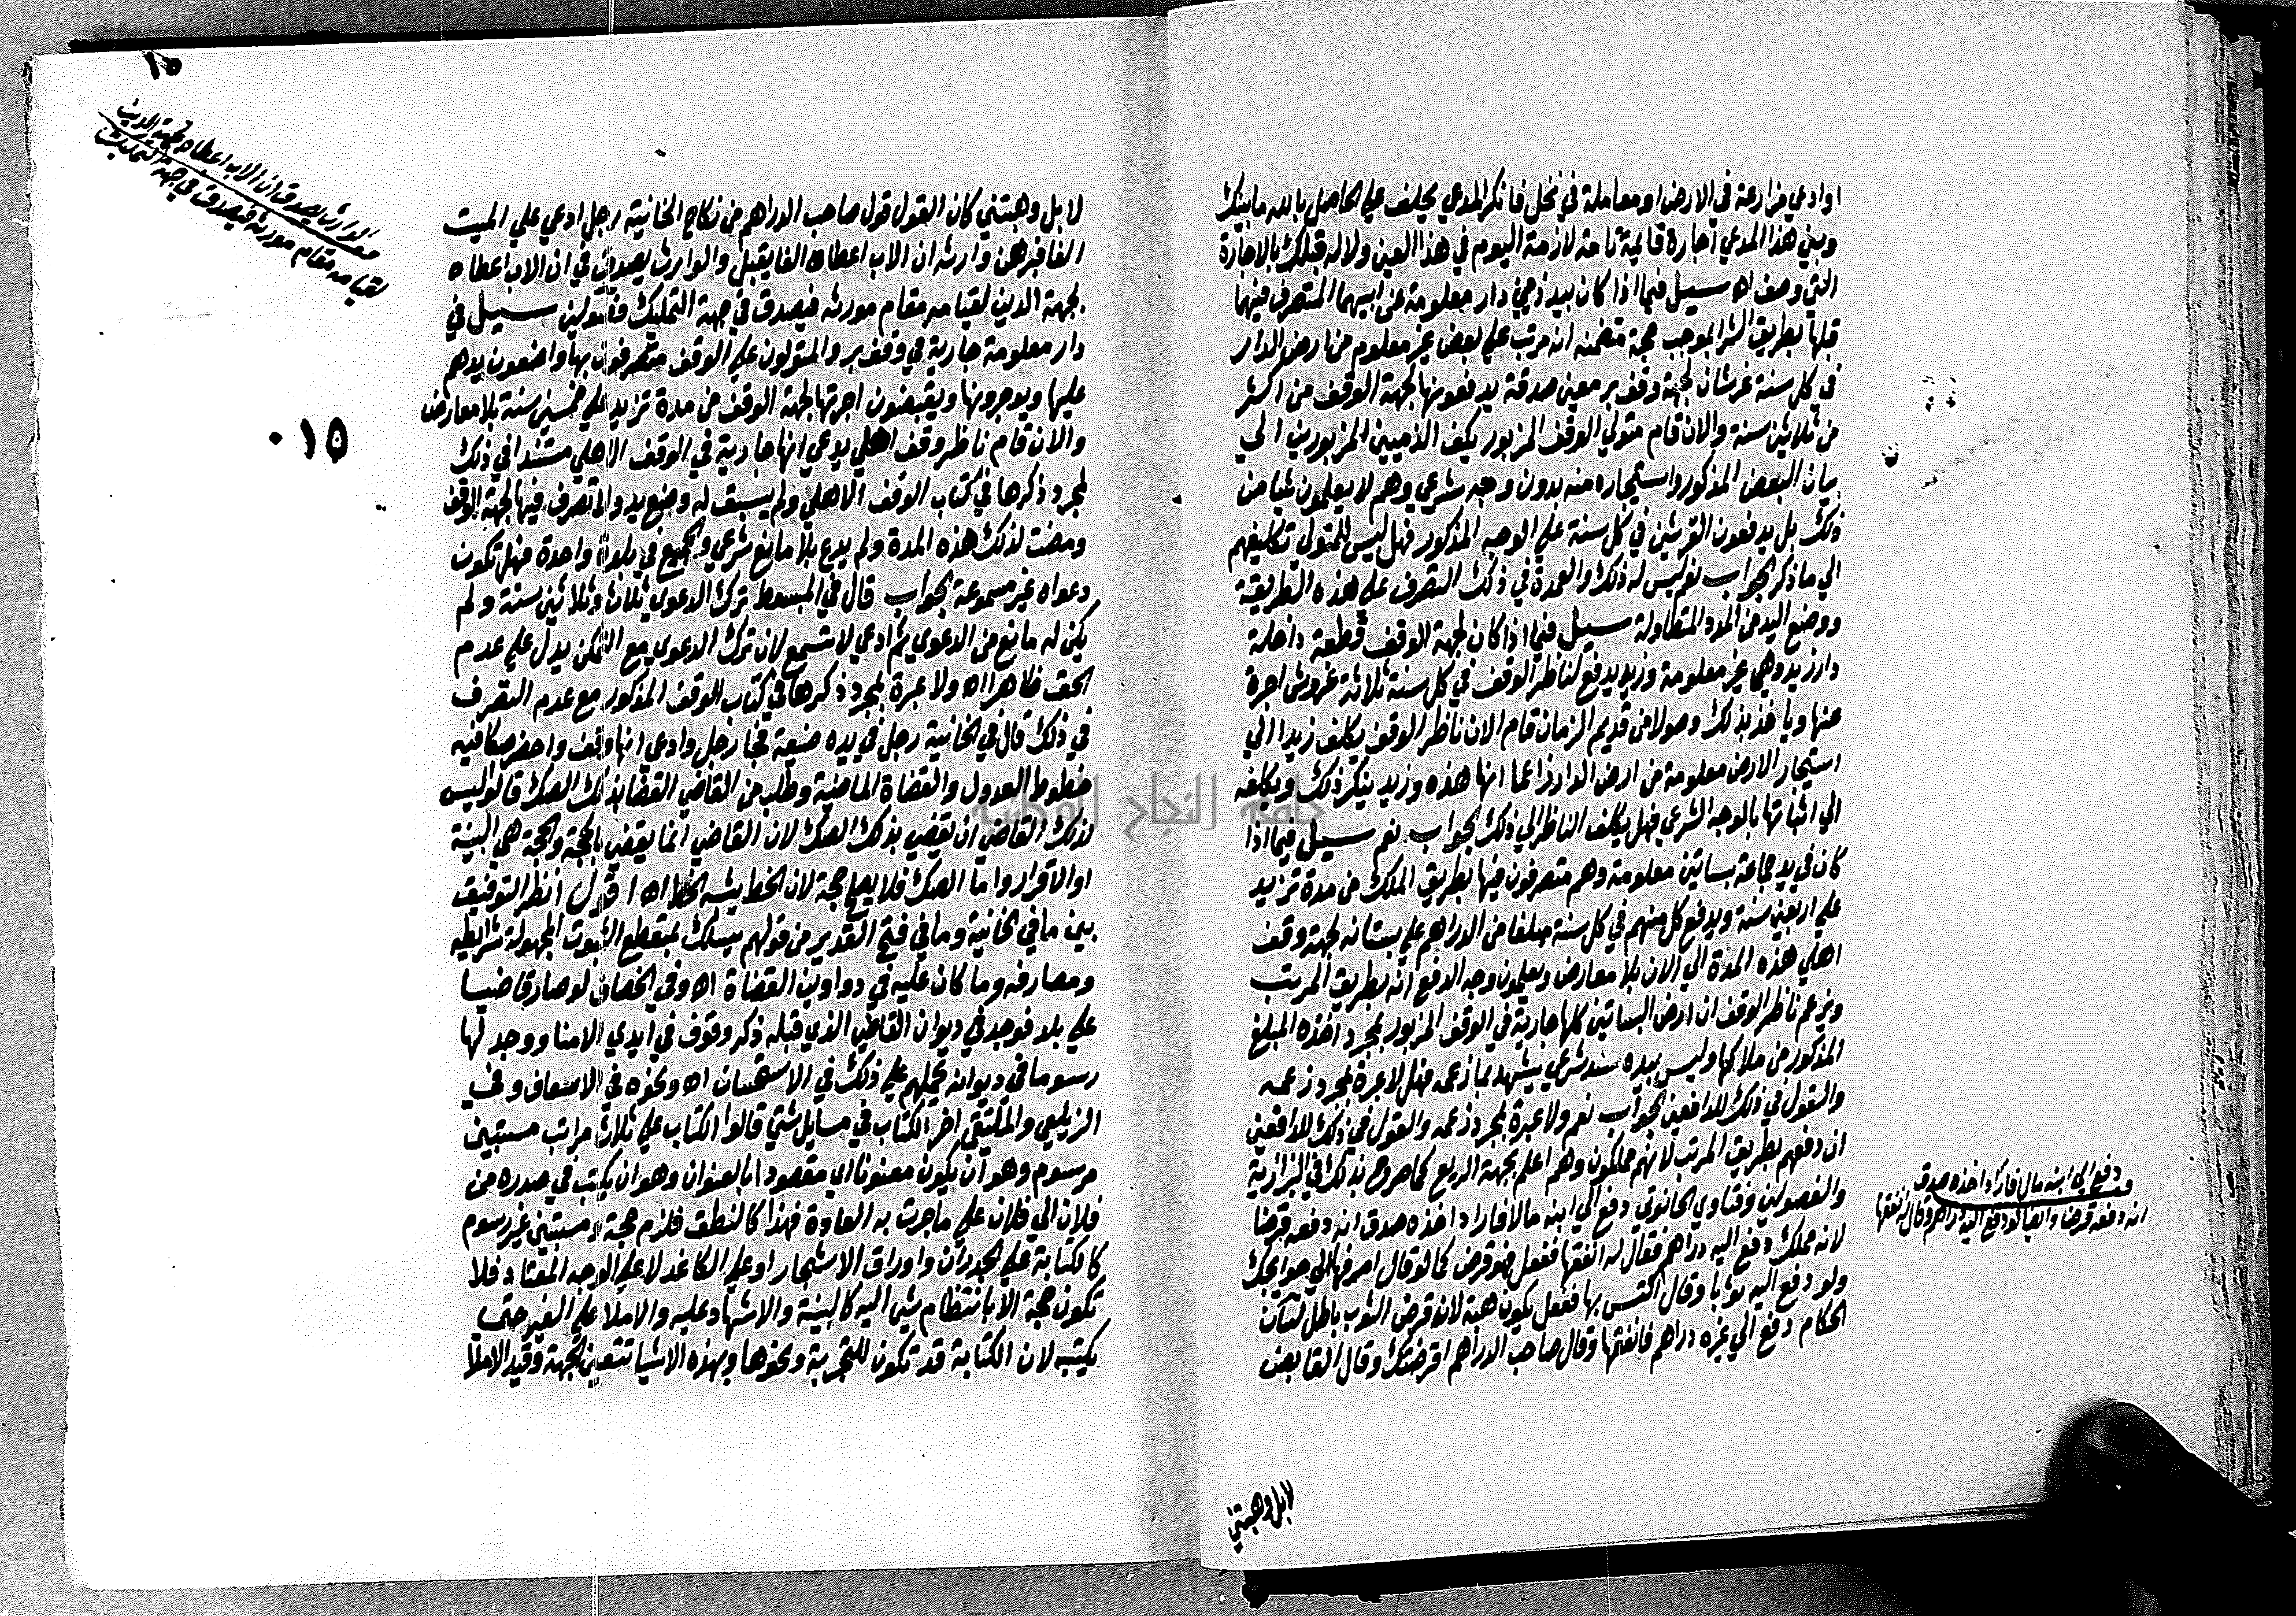 او ادعي مزارعة في الارض او معاملة في نخل فانكر المدعي يحلف علي الحاصل بالله ما بينك
وبين هذا المدعي اجارة قايمة تامة لازمة اليوم في هذا العين ولا له قبلك بالاجارة
التي وصف اه سيل فيما اذا كان بيد ذميين دار معلومة عن ابيهما المتصرف فيهما
قبلها بطريق الشرا بموجب حجة متضمنه انه مرتب علي بعض غير معلوم من ارض الدار
في كل سنة غرشان لجهة وقف بر معين صدقة يدفعونها لجهة الوقف من اكثر
من ثلاثين سنة والان قام متولي الوقف المزبور يكلف الذميين المزبورين الي
بيان البعض المذكور واستيجاره منه بدون وجه شرعي وهم لا يعلمون شيا من
ذلك بل يدفعون القرشين في كل سنة علي الوجه المذكور فهل ليس للمتولي تكليفهم
الي ما ذكر الجواب نعم ليس له ذلك والعمدة في ذلك التصرف علي هذه الطريقة
ووضع اليد من المدد المتطاولة سيل فيما اذا كان لجهة الوقف قطعة داخلة
دار زيد وهي غير معلومة وزيد يدفع لناظر الوقف في كل سنة ثلاثة غروش اجرة
عنها وياخذ بذلك وصولا من قديم الزمان قام الان ناظر الوقف يكلف زيدا الي
استيجار الارض معلومة من ارض الدار زاعما انها هذه وزيد ينكر ذلك ويكلفه
الي اثباتها بالوجه الشرعي فهل يكلف الناظر الي ذلك الجواب نعم سيل فيما اذا
كان في يد جماعة بساتين معلومة وهم متصرفون فيها بطريق الملك من مدة تزيد
علي اربعين سنة ويدفع كل منهم في كل سنة مبلغا من الدراهم علي بستانه لجهة وقف
اهلي هذه المدة الي الان بلا معارض ويعلمون وجه الدفع انه بطريق المرتب
ويزعم ناظر الوقف ان ارض البساتين كلها جارية في الوقف المزبور بمجرد اخذه المبلغ
المذكور من ملاكها وليس بيده سند شرعي يشهد بما زعمه فهل لا عبرة بمجرد زعمه
والقول في ذلك للدافعين الجواب نعم ولا عبرة بمجرد زعمه والقول في ذلك للدافعين
ان دفعهم بطريق المرتب لانهم مملكون وهم اعلم بجهة الدفع كما صرح بذلك في البزازية
والفصولين وفتاوي الحانوتي دفع الي ابنه مالا فاراد اخذه صدق انه دفعه قرضا
لانه مملك دفع اليه دراهم فقال له انفقها ففعل فهو قرض كما لو قال اصرفها الي حوايجك
ولو دفع اليه ثوبا وقال اكتس بها ففعل يكون هبة لانه قرض الثوب باطل لسان
الحكام دفع الي غيره دراهم فانفقها وقال صاحب الدراهم اقرضتك وقال القابض
دفع الي ابنه مال فاراد اخذه صدق
انه دفعه قرضا وايضا لو دفع اليه دراهم وقال انفقها
لا بل وهبتني
١٥
الوارث يصدق ان الاب اعطاه بجهة الدين
لقيامه مقام مورثه فيصدق في جهة التمليك
٠١٥
لا بل وهبتني كان القول قول صاحب الدراهم من نكاح الخانية رجل ادعي علي الميت
الفا فبرهن وارثه ان الاب اعطاه الفا يقبل والوارث يصدق في ان الاب اعطاه
بجهة الدين لقيامه مقام مورثه فيصدق في جهة التمليك فصولين سيل في
دار معلومة جارية في وقف بر والمتولون علي الوقف متصرفون بها واضعون يدهم
عليها ويوجرونها ويقبضون اجرتها لجهة الوقف من مدة تزيد علي خمسين سنة بلا معارض
والان قام ناظر وقف اهلي يدعي انها جارية في الوقف الاهلي مستندا في ذلك
لمجرد ذكرها في كتاب الوقف الاهلي ولم يسبق له وضع يد ولا تصرف فيها لجهة الوقف
ومضت لذلك هذه المدة ولم يدع بلا مانع شرعي والجميع في بلدة واحدة فهل تكون
دعواه غير مسموعة الجواب قال في المبسوط ترك الدعوي ثلاث وثلاثين سنة ولم
يكن له مانع من الدعوي ثم ادعي لا تسمع لان ترك الدعوي مع التمكن يدل علي عدم
الحق ظاهرا اه ولا عبرة بمجرد ذكرها في كتاب الوقف المذكور مع عدم التصرف
في ذلك قال في الخانية رجل في يده ضيعة فجا رجل وادعي انها وقف واحضر صكا فيه
خطوط العدول والقضاة الماضية وطلب من القاضي القضا بذلك الصك قالو ليس
لذلك القاضي ان يقضي بذلك الصك لان القاضي انما يقضي بالحجة والحجة هي البينة
او الاقرار واما الصك فلا يصلح حجة لان الخط يشبه الخط اه اقول انظر التوفيق
بين ما في الخانية وما في فتح القدير من قولهم يسلك بمنقطع الثبوت المجهولة شرايطه
ومصارفه وما كان عليه في دواوين القضاة اه وفي الخصاف لو صار قاضيا
علي بلد فوجد في ديوان القاضي الذي قبله ذكر وقوف في ايدي الامنا ووجد لها
رسوما في ديوانه يحملهم علي ذلك في الاستحسان اه ونحوه في الاسعاف وفي
الزيلعي والملتقي اخر الكتاب في مسايل شتي قالوا الكتاب علي ثلاث مراتب مستبين
مرسوم وهو ان يكون معنونا اي مقصودا بالعنوان وهو ان يكتب في صدره من
فلان الي فلان علي ما جرت به العادة فهذا كالنطق فلزم حجة ومستبين غير رسوم
كالكتابة علي الجدران واوراق الاشجار او علي الكاغد لا علي الوجه المعتاد فلا
تكون حجة الا بانتظام شي اليه كالبينة والاشهاد عليه والاملا علي الغير حتي
يكتبه لان الكتابة قد تكون للتجربة ونحوها وبهذه الاشيا تتعين الجهة وقيد الاملا
جامعة النجاح الوطنية